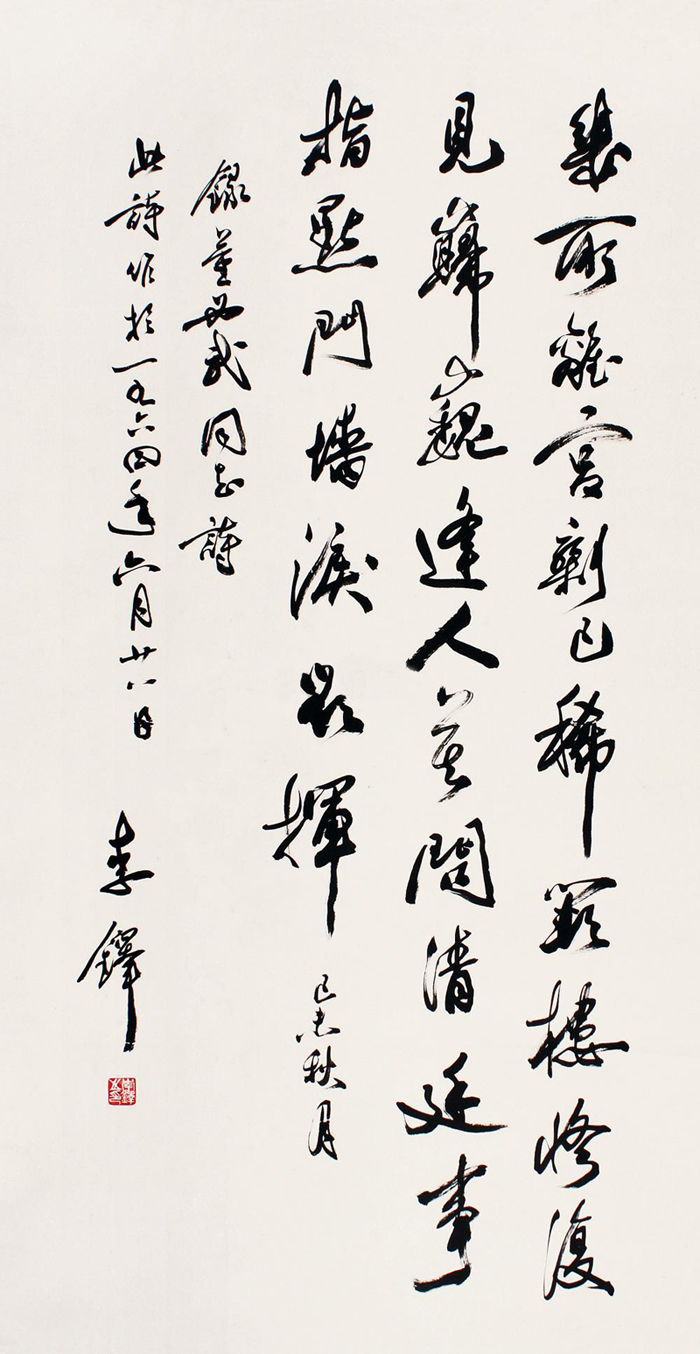 幾所離宮剩已稀數樓修復
見巋巍逢人莫問清廷事
指點門墻淚欲揮 己未秋月
錄董必武同志詩
此詩作於一九六四年六月廿八日 李鐸